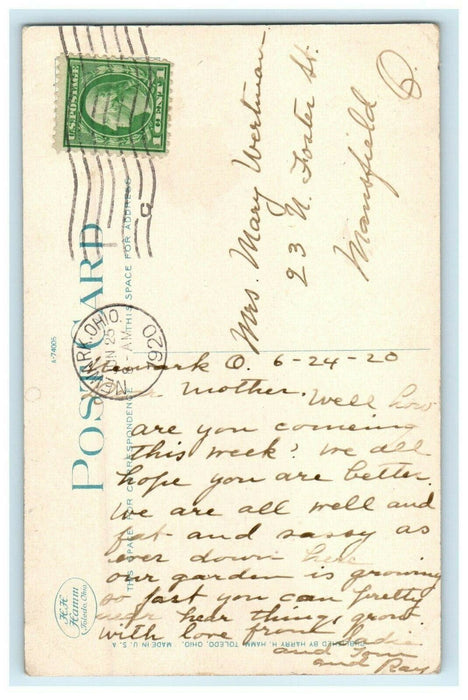 U.S. POSTAGE
1 CENT 1
NEWARK, OHIO.
JUN 25
AM
1920
POST CARD
THIS SPACE FOR CORRESPONDENCE
THIS SPACE FOR ADDRESS
A-74005
Mrs. Mary Wertman
23 N. Foster St.
Mansfield
O.
Newark O. 6-24-20
Mother. Well how
are you comeing
this week? We all
hope you are better.
We are all well and
fat and sassy as
ever down here
our garden is growing
so fast you can pretty
near hear things grow
with love from
and Tom
and Ray
H.H.
Hamm
Toledo, Ohio.
PUBLISHED BY HARRY H. HAMM, TOLEDO, OHIO. MADE IN U.S.A.